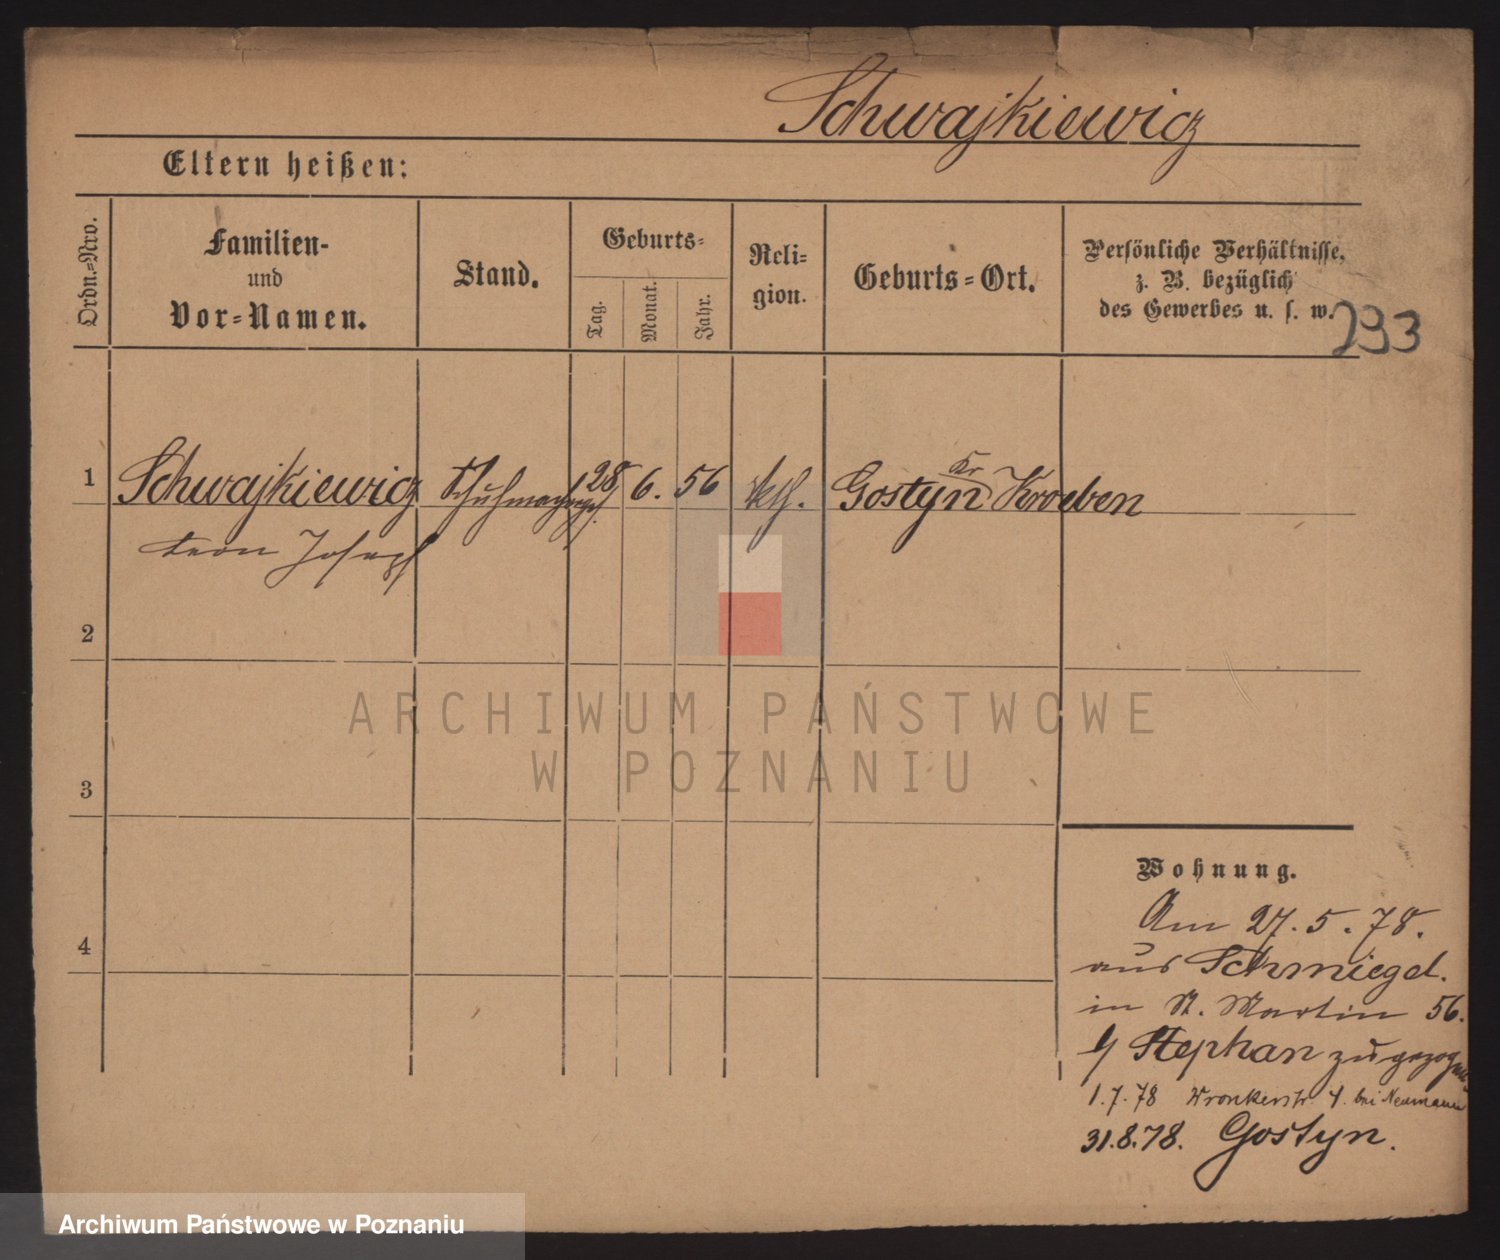 Schwajkiewicz
Eltern heißen:
Ordn.=Nro.
Familien-
und
Vor=Namen.
Stand.
Geburts=
Tag.
Monat.
Jahr.
Reli=
gion.
Geburts=Ort.
Persönliche Verhältnisse,
z. B. bezüglich
des Gewerbes u. s. w.
293
1 Schwajkiewicz Schuhmacherges. 28 6. 56 kth. Gostyn Kr Kroeben
Leon Joseph
2
3
4
ARCHIWUM PAŃSTWOWE
W POZNANIU
Wohnung.
Am 27.5.78.
aus Schmiegel.
in St. Martin 56.
b/ Stephan zugezogen
1.7.78 Wronkerstr. 4. bei Neumann
31.8.78. Gostyn.
Archiwum Państwowe w Poznaniu